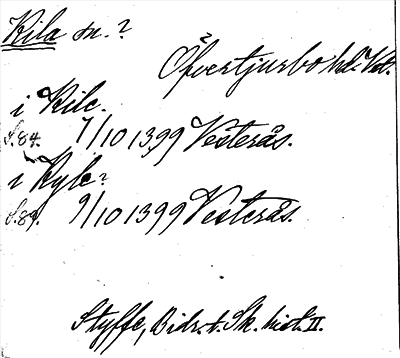 Kila sn.?
Öfvertjurbo hd. Vst.
i Kilc.
S.84. 7/10 1399 Vesterås.
i Kyle?
S.89. 9/10 1399 Vesterås.
Styffe, Bidr. t. Sk. hist. II.